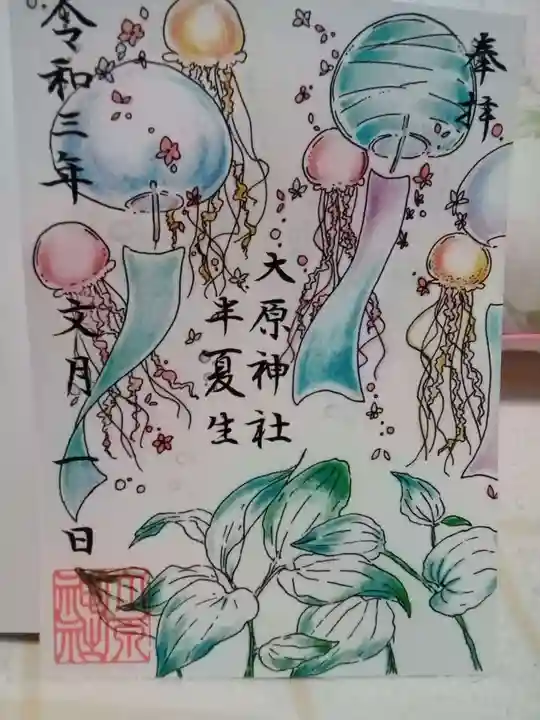 奉拝
大原神社
半夏生
令和三年 文月 一日